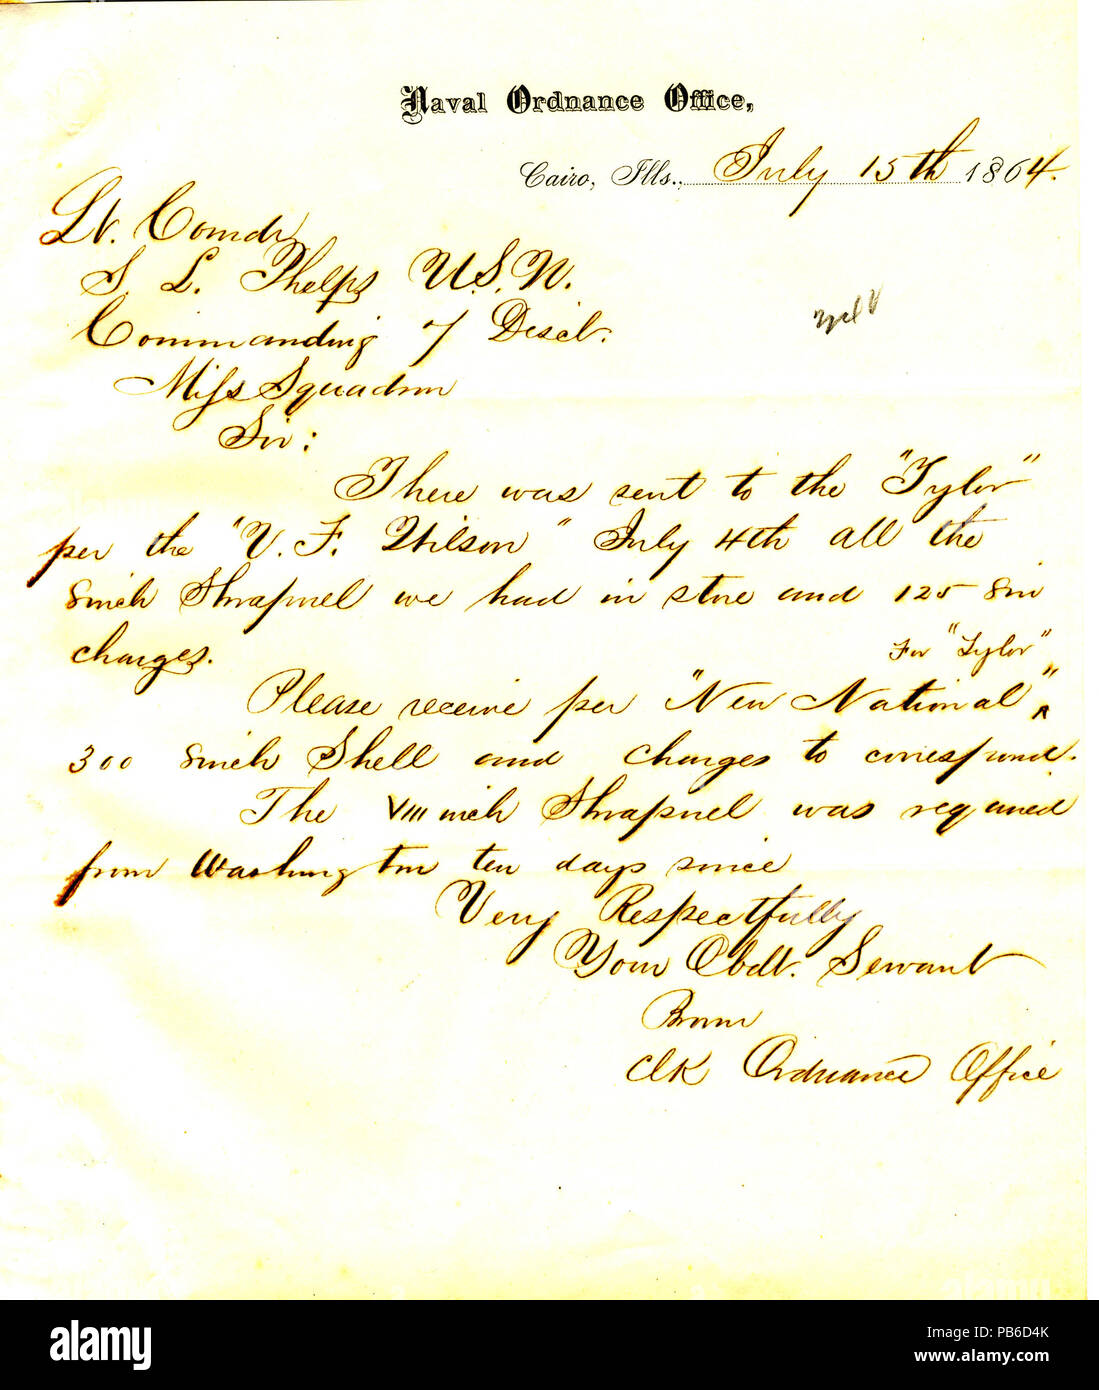 Naval Ordnance Office,
Cairo, Ills., July 15th 1864.
Lt. Comdr
S. L. Phelps U.S.N.
Commanding 7 Disct.
Miss Squadron
Sir:
There was sent to the "Tylor"
per the "V. F. Wilson" July 4th all the
8inch Shrapnel we had in store and 125 8in
charges.
For "Tylor"
Please receive per "New National" ^
300 8inch Shell and charges to correspond.
The VIII inch Shrapnel was required
from Washington ten days since
Very Respectfully
Your Obdt. Servant
Clk Ordnance Office
alamy
Image ID: PB6D4K
www.alamy.com